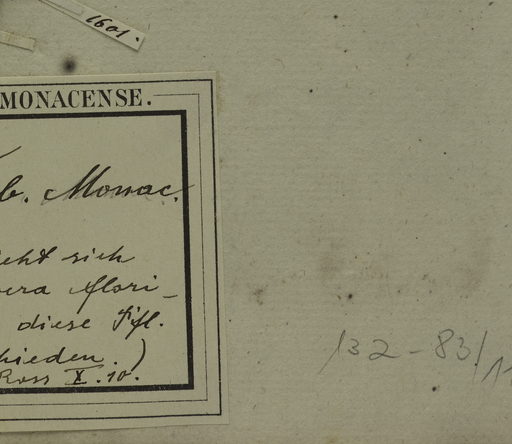 1601.
MONACENSE.
b. Monac.
ieht sich
vera flori-
diese Pfl.
hieden.)
Ross X.10.
132-83/1